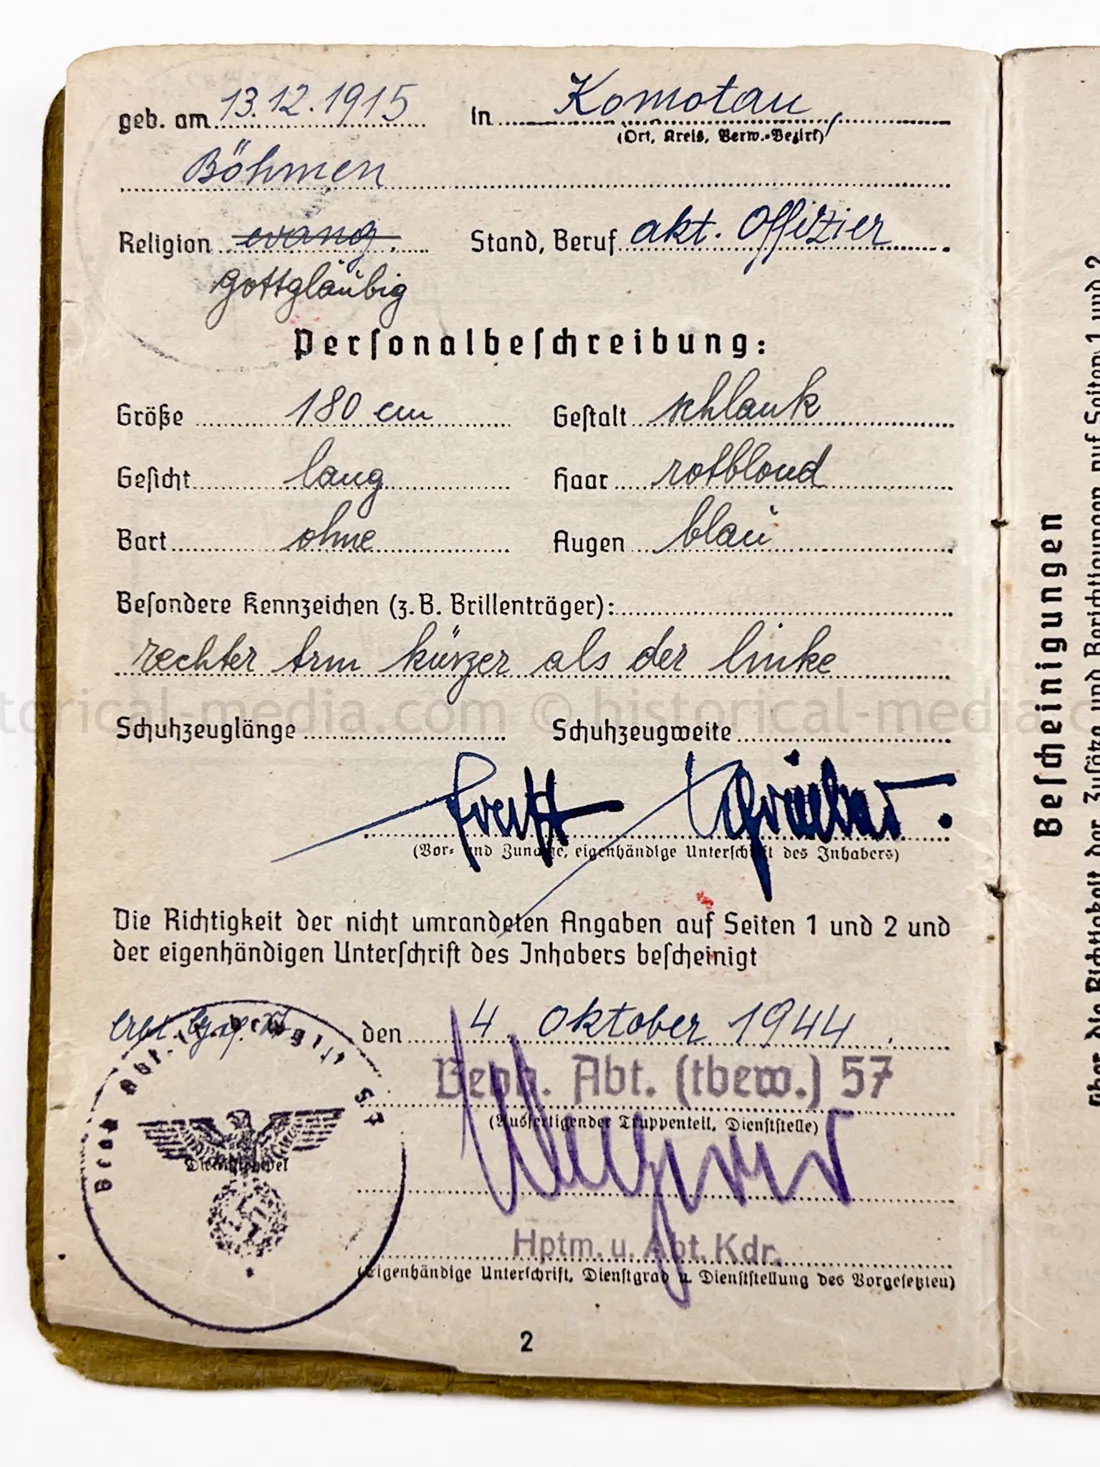 geb. am 13.12.1915 in Komotau,
(Ort, Kreis, Verw.-Bezirk)
Böhmen
Religion evang. Stand, Beruf akt. Offizier
gottgläubig
Personalbeschreibung:
Größe 180 cm Gestalt schlank
Gesicht lang Haar rotblond
Bart ohne Augen blau
Besondere Kennzeichen (z. B. Brillenträger):
rechter Arm kürzer als der linke
historical-media.com © historical-media.com
Schuhzeuglänge Schuhzeugweite
(Vor- und Zuname, eigenhändige Unterschrift des Inhabers)
Die Richtigkeit der nicht umrandeten Angaben auf Seiten 1 und 2 und
der eigenhändigen Unterschrift des Inhabers bescheinigt
den 4. Oktober 1944.
Beob. Abt. (tbew.) 57
(Ausfertigender Truppenteil, Dienststelle)
Dienststempel
Hptm. u. Abt. Kdr.
(Eigenhändige Unterschrift, Dienstgrad u. Dienststellung des Vorgesetzten)
2
Bescheinigungen
über die Richtigkeit der Zusätze und Berichtigungen auf Seiten 1 und 2